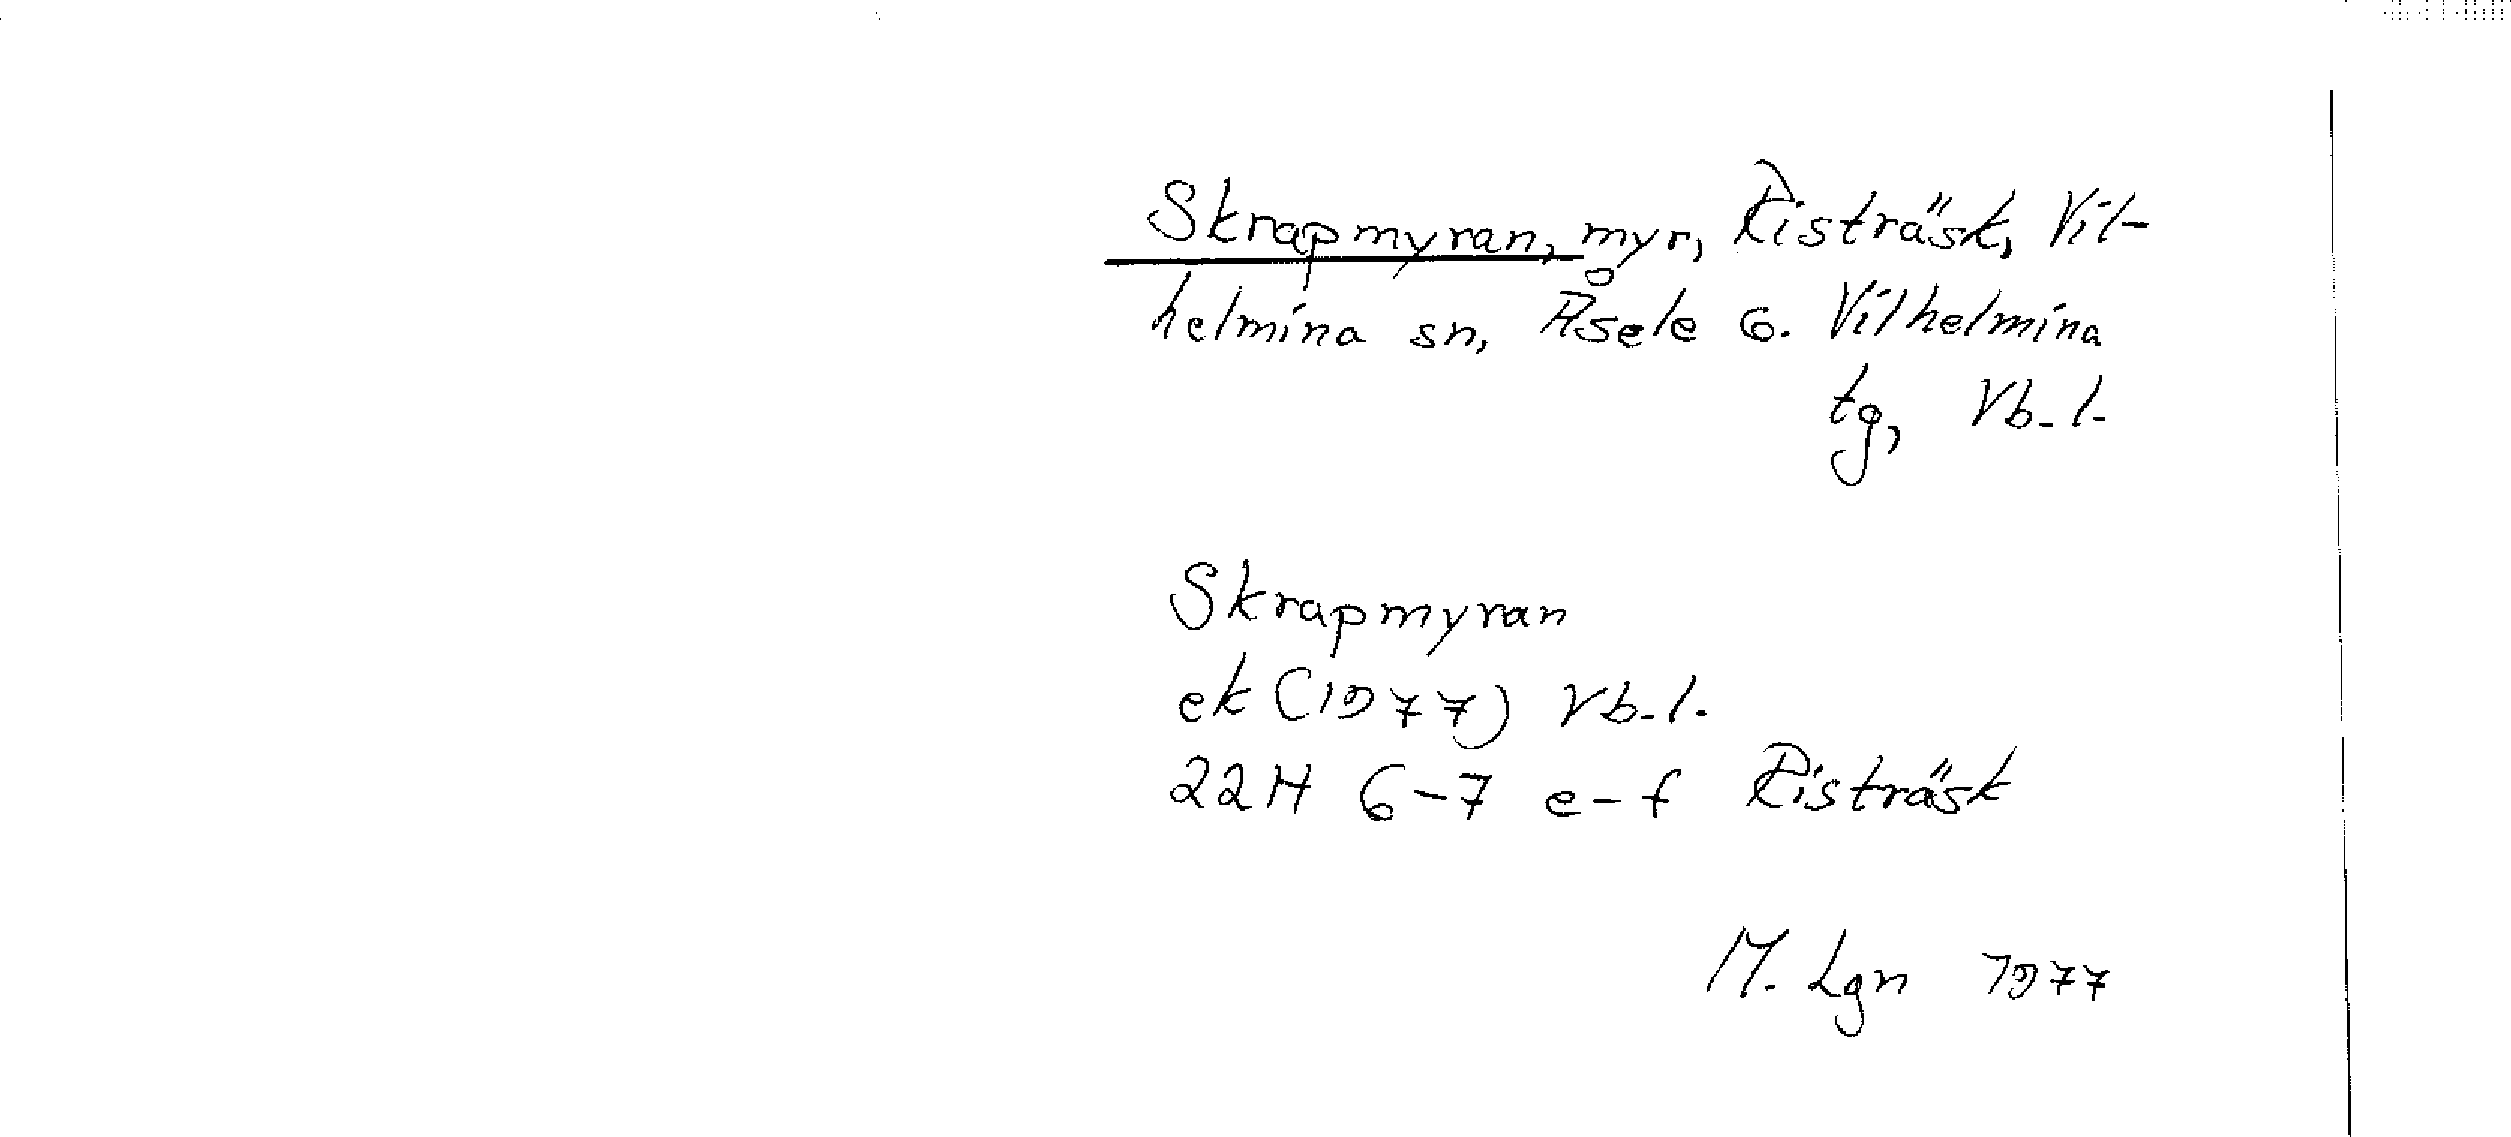 Skrapmyran, myr, Risträsk, Vil-
helmina sn, Åsele o. Vilhelmina
tg, Vb. l.
Skrapmyran
ek (1977) Vb. l.
22H 6-7 e-f Risträsk
M. Lgn 1977